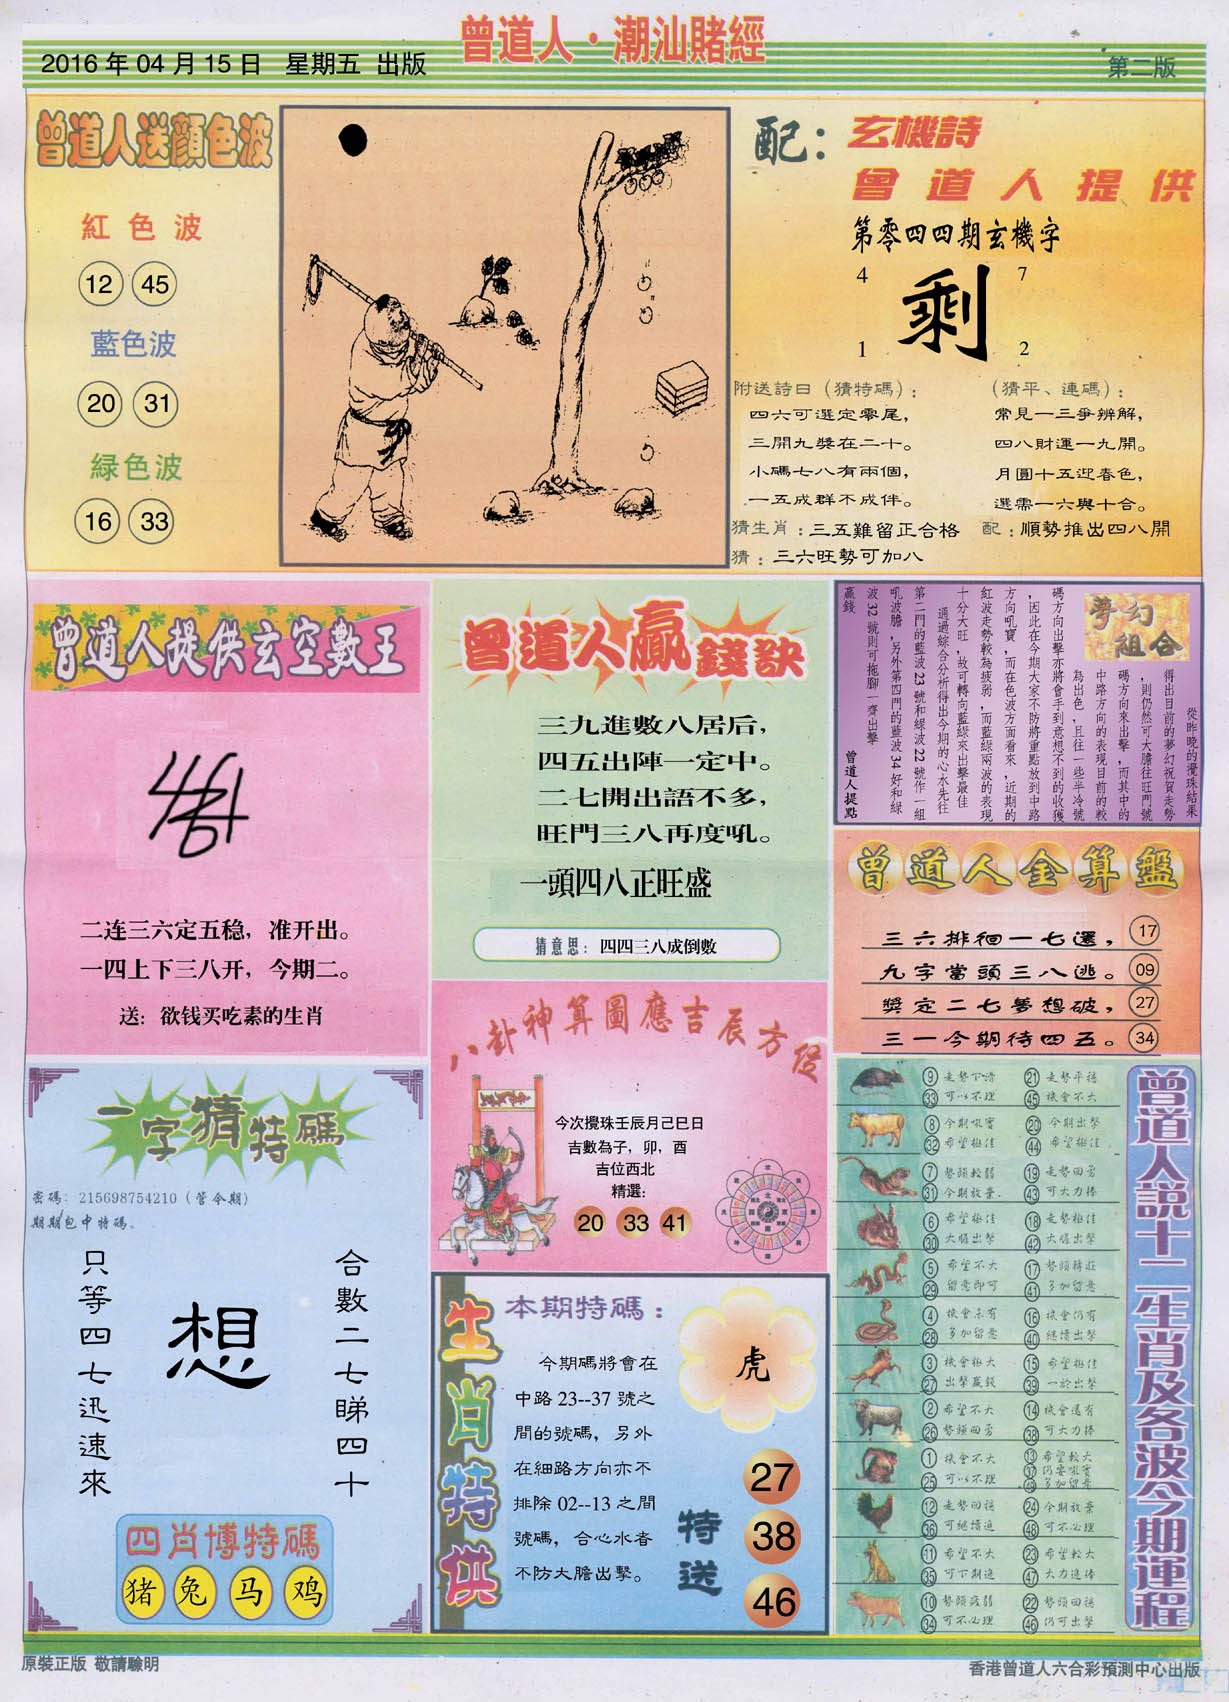 曾道人·潮汕賭經
2016年04月15日 星期五 出版
第二版
曾道人送顏色波
紅色波
12 45
藍色波
20 31
緑色波
16 33
配：玄機詩
曾道人提供
第零四四期玄機字
4 7
剩
1 2
附送詩曰（猜特碼）：
四六可選定零尾，
三開九獎在二十。
小碼七八有兩個，
一五成群不成伴。
（猜平、連碼）：
常見一三爭辨解，
四八財運一九開。
月圓十五迎春色，
選需一六與十合。
猜生肖：三五難留正合格
配：順勢推出四八開
猜：三六旺勢可加八
曾道人提供玄空數王
二连三六定五稳，准开出。
一四上下三八开，今期二。
送：欲钱买吃素的生肖
曾道人贏錢訣
三九進數八居后，
四五出陣一定中。
二七開出語不多，
旺門三八再度吼。
一頭四八正旺盛
猜意思：四四三八成倒數
夢幻組合
從昨晚的攪珠結果
得出目前的夢幻祝賀走勢
，則仍然可大膽往旺門號
碼方向來出擊，而其中的
中路方向的表現目前的較
為出色，且往一些半冷號
碼方向出擊亦將會手到意想不到的收獲
，因此在今期大家不防將重點放到中路
方向吼寶，而在色波方面看來，近期的
紅波走勢較為疲弱，而藍綠兩波的表現
十分大旺，故可轉向藍綠來出擊最佳
通過綜合分析得出今期的心水先往
第二門的藍波23號和綠波22號作一組
吼波膽，另外第四門的藍波34好和綠
波32號則可拖腳一齊出擊
贏錢
曾道人提點
曾道人金算盤
三六排徊一七選， 17
九字當頭三八逃。 09
獎定二七夢想破， 27
三一今期待四五。 34
八卦神算圖應吉辰方位
今次攪珠壬辰月己巳日
吉數為子，卯，酉
吉位西北
精選：
20 33 41
一字猜特碼
密碼：215698754210（管今期）
期期包中特碼。
合數二七睇四十
想
只等四七迅速來
四肖博特碼
猪 兔 马 鸡
生肖特供
本期特碼：
虎
今期碼將會在
中路23--37號之
間的號碼，另外
在細路方向亦不
排除02--13之間
號碼，合心水者
不防大膽出擊。
特送
27
38
46
曾道人說十二生肖及各波今期運程
9 走勢下滑 21 走勢平穩
33 可以不理 45 機會不大
8 今期吼實 20 今期出擊
32 希望極佳 44 希望極佳
7 勢頭較弱 19 走勢回勇
31 今期放棄. 43 可大力捧
6 希望極佳 18 走勢極佳
30 大膽出擊 42 大膽出擊
5 希望不大 17 勢頭轉旺
29 留意即可 41 多加留意
4 機會未有 16 機會仍有
28 多加留意 40 繼續出擊
3 機會極大 15 希望極佳
27 出擊贏錢 39 一於出擊
2 希望不大 14 機會還有
26 勢頭回勇 38 可大力捧
1 機會不大 13 希望較大
25 可以不理 37 仍要吼實
49 多加留意
12 走勢回穩 24 今期放棄
36 可繼續追 48 可不必理
11 希望不大 23 希望較大
35 可下期追 47 大力追捧
10 勢頭疲弱 22 勢頭回穩
34 可不必理 46 仍可出擊
原裝正版 敬請驗明
香港曾道人六合彩預測中心出版